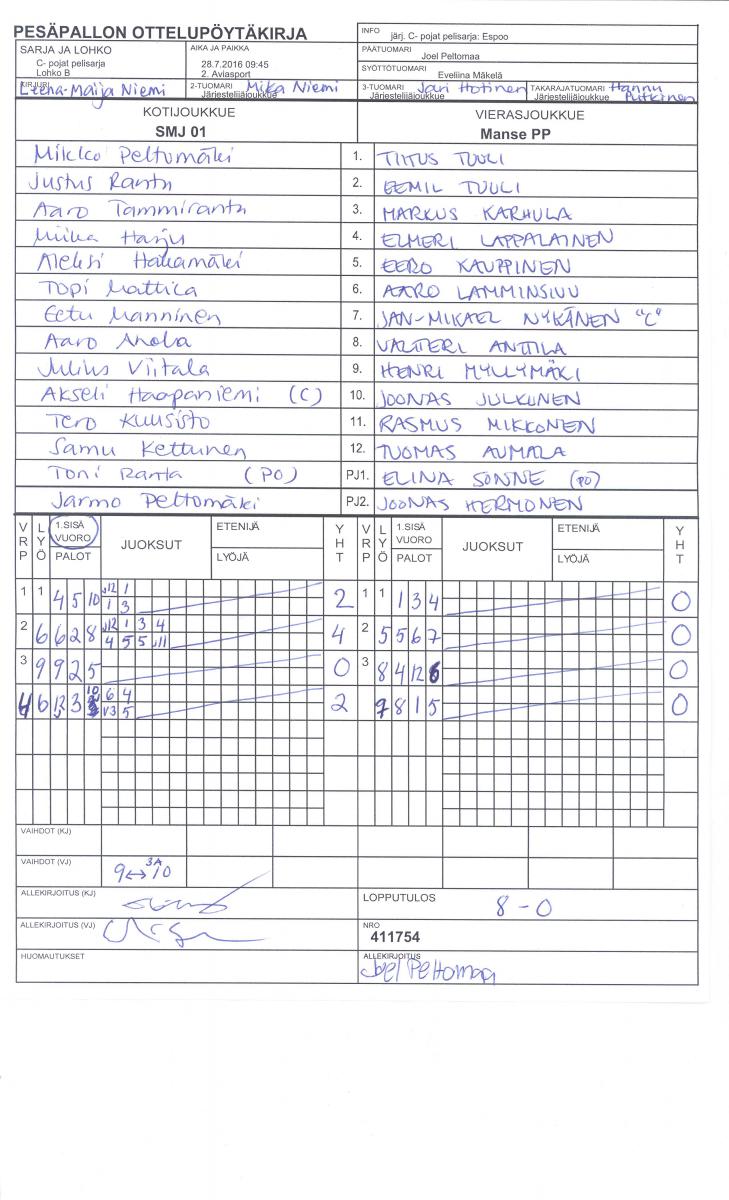 PESÄPALLON OTTELUPÖYTÄKIRJA
INFO järj. C- pojat pelisarja: Espoo
SARJA JA LOHKO
C- pojat pelisarja
Lohko B
AIKA JA PAIKKA
28.7.2016 09:45
2. Aviasport
PÄÄTUOMARI
Joel Peltomaa
SYÖTTÖTUOMARI
Eveliina Mäkelä
KIRJURI Leena-Maija Niemi
2-TUOMARI Mika Niemi
Järjestelijäjoukkue
3-TUOMARI Jari Hotinen
Järjestelijäjoukkue
TAKARAJATUOMARI Hannu
Järjestelijäjoukkue Putkinen
KOTIJOUKKUE
SMJ 01
VIERASJOUKKUE
Manse PP
Mikko Peltomäki 1. TIITUS TUULI
Justus Ranta 2. EEMIL TUULI
Aaro Tammiranta 3. MARKUS KARHULA
Miika Harju 4. ELMERI LAPPALAINEN
Aleksi Hakamäki 5. EERO KAUPPINEN
Topi Mattila 6. AARO LAMMINSIVU
Eetu Manninen 7. JAN-MIKAEL NYKÄNEN "C"
Aaro Ahola 8. VALTTERI ANTTILA
Julius Viitala 9. HENRI MYLLYMÄKI
Akseli Haapaniemi (C) 10. JOONAS JULKUNEN
Tero Kuusisto 11. RASMUS MIKKONEN
Samu Kettunen 12. TUOMAS AUMALA
Toni Ranta (PO) PJ1. ELINA SONNE (PO)
Jarmo Peltomäki PJ2. JOONAS HERMONEN
VRP LYÖ 1.SISÄ VUORO PALOT JUOKSUT ETENIJÄ LYÖJÄ YHT VRP LYÖ 1.SISÄ VUORO PALOT JUOKSUT ETENIJÄ LYÖJÄ YHT
1 1 4 5 10 2 1 1 1 3 4 0
2 6 6 2 8 4 2 5 5 6 7 0
3 9 9 2 5 0 3 8 4 12 6 0
4 6 3 2 9 8 1 5 0
VAIHDOT (KJ)
VAIHDOT (VJ) 9↔10 3A
ALLEKIRJOITUS (KJ)
LOPPUTULOS 8-0
ALLEKIRJOITUS (VJ)
NRO
411754
HUOMAUTUKSET
ALLEKIRJOITUS
Joel Peltomaa